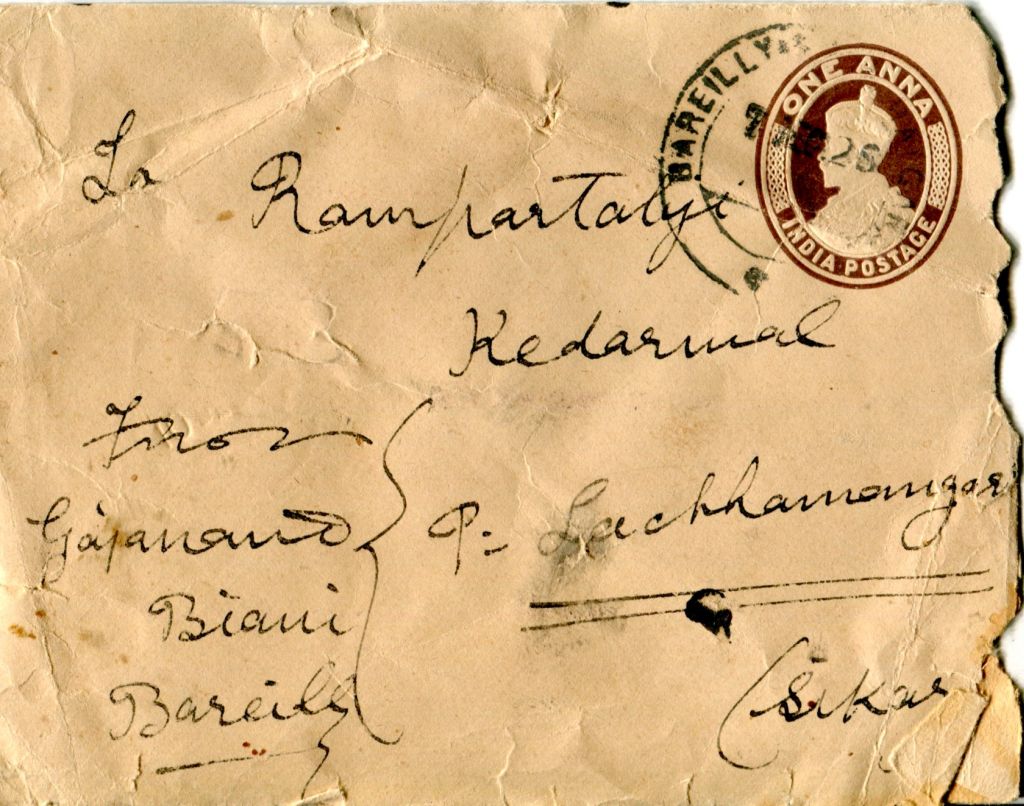 BAREILLY
ONE ANNA
INDIA POSTAGE
La
Rampartalji
Kedarmal
From
Gajanand
Biani
Bareilly
P:- Lachhamangar
(Sikar